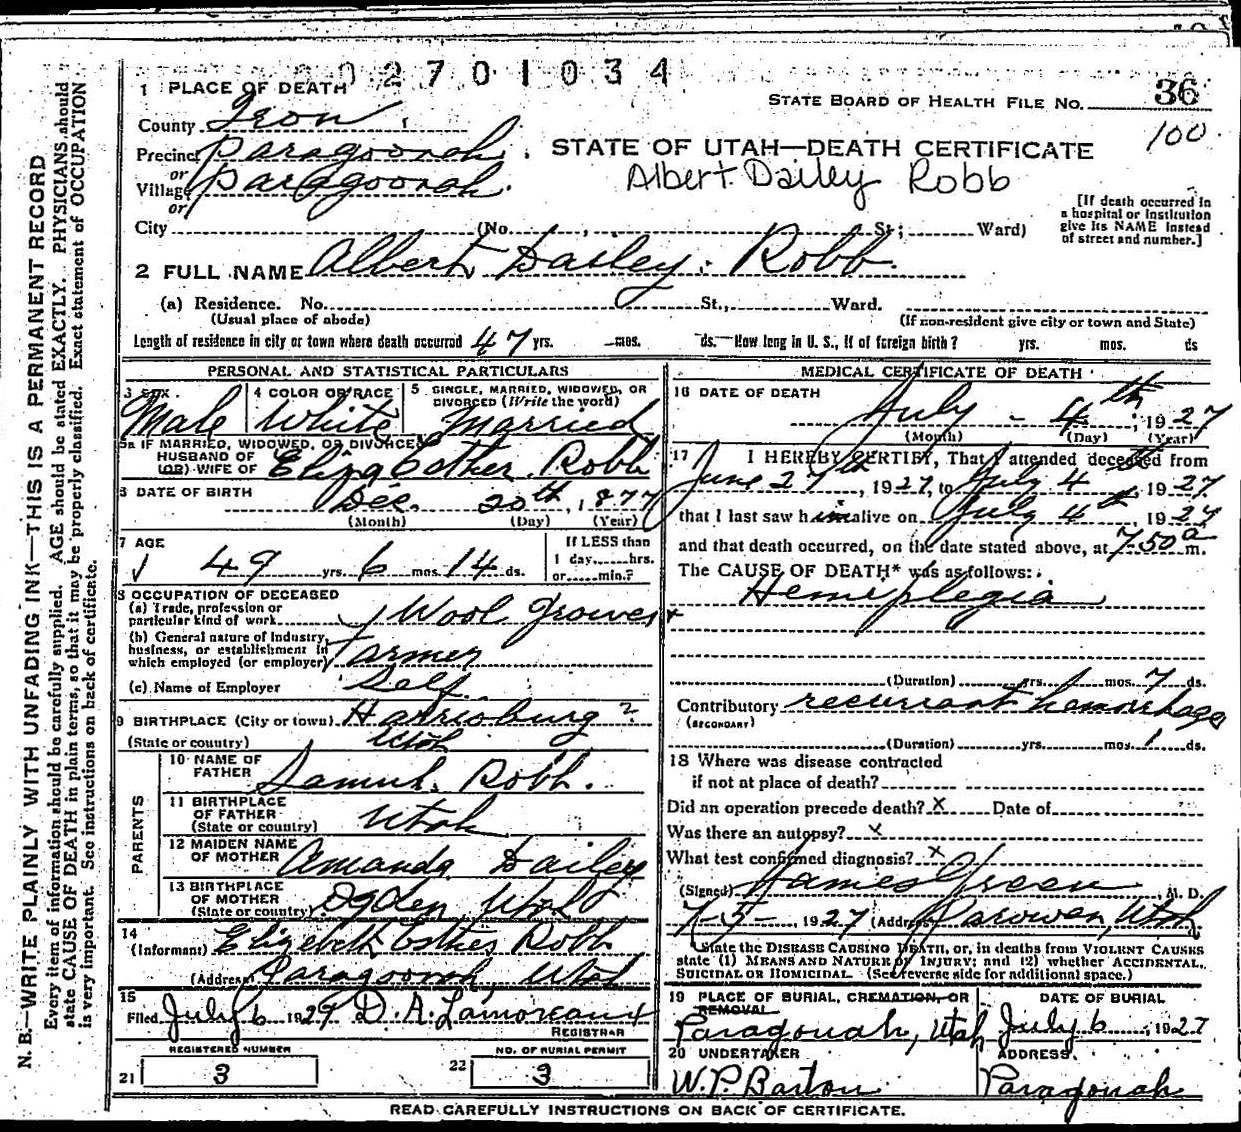 02701034
1 PLACE OF DEATH
STATE BOARD OF HEALTH FILE NO. 36
100
County Iron
Precinct Paragoonah
or
Village Paragoonah.
or
STATE OF UTAH—DEATH CERTIFICATE
Albert Dailey Robb
[If death occurred in
a hospital or institution
give its NAME instead
of street and number.]
City (No. , St.; Ward)
2 FULL NAME Albert Dailey Robb.
(a) Residence. No. St., Ward.
(Usual place of abode) (If non-resident give city or town and State)
Length of residence in city or town where death occurred 47 yrs. mos. ds. How long in U. S., if of foreign birth? yrs. mos. ds
PERSONAL AND STATISTICAL PARTICULARS
3 SEX 4 COLOR OR RACE 5 SINGLE, MARRIED, WIDOWED, OR
DIVORCED (Write the word)
Male White Married
5a IF MARRIED, WIDOWED, OR DIVORCED
HUSBAND OF
(OR) WIFE OF Eliza Esther Robb
6 DATE OF BIRTH
Dec. 20th, 1877
(Month) (Day) (Year)
7 AGE If LESS than
1 day hrs.
49 yrs. 6 mos. 14 ds. or min.?
8 OCCUPATION OF DECEASED
(a) Trade, profession or
particular kind of work Wool Grower
(b) General nature of industry,
business, or establishment in
which employed (or employer) Farmer
(c) Name of Employer Self
9 BIRTHPLACE (City or town) Harrisburg ?
(State or country) Utah
PARENTS
10 NAME OF
FATHER Samuel Robb.
11 BIRTHPLACE
OF FATHER
(State or country) Utah
12 MAIDEN NAME
OF MOTHER Amanda Dailey
13 BIRTHPLACE
OF MOTHER
(State or country) Ogden, Utah
14
(Informant) Elizabeth Esther Robb
(Address) Paragoonah, Utah
15
Filed July 6 1927 D. A. Lamoreaux
REGISTRAR
REGISTERED NUMBER NO. OF BURIAL PERMIT
21 3 22 3
MEDICAL CERTIFICATE OF DEATH
16 DATE OF DEATH
July - 4th, 1927
(Month) (Day) (Year)
17 I HEREBY CERTIFY, That I attended deceased from
June 27th, 1927, to July 4th, 1927
that I last saw him alive on July 4th, 1927
and that death occurred, on the date stated above, at 7:50 a m.
The CAUSE OF DEATH* was as follows:
Hemiplegia
(Duration) yrs. mos. 7 ds.
Contributory recurrant hemorrhage
(SECONDARY)
(Duration) yrs. mos. 1 ds.
18 Where was disease contracted
if not at place of death?
Did an operation precede death? X Date of
Was there an autopsy? X
What test confirmed diagnosis? X
(Signed) James Green, M. D.
7-5-, 1927 (Address) Parowan, Utah
*State the DISEASE CAUSING DEATH, or, in deaths from VIOLENT CAUSES
state (1) MEANS AND NATURE OF INJURY; and (2) whether ACCIDENTAL,
SUICIDAL OR HOMICIDAL. (See reverse side for additional space.)
19 PLACE OF BURIAL, CREMATION, OR
REMOVAL DATE OF BURIAL
Paragonah, Utah July 6, 1927
20 UNDERTAKER ADDRESS.
W. P. Barton Paragonah
READ CAREFULLY INSTRUCTIONS ON BACK OF CERTIFICATE.
N. B.—WRITE PLAINLY WITH UNFADING INK—THIS IS A PERMANENT RECORD
Every item of information should be carefully supplied. AGE should be stated EXACTLY. PHYSICIANS should
state CAUSE OF DEATH in plain terms, so that it may be properly classified. Exact statement of OCCUPATION
is very important. See instructions on back of certificate.